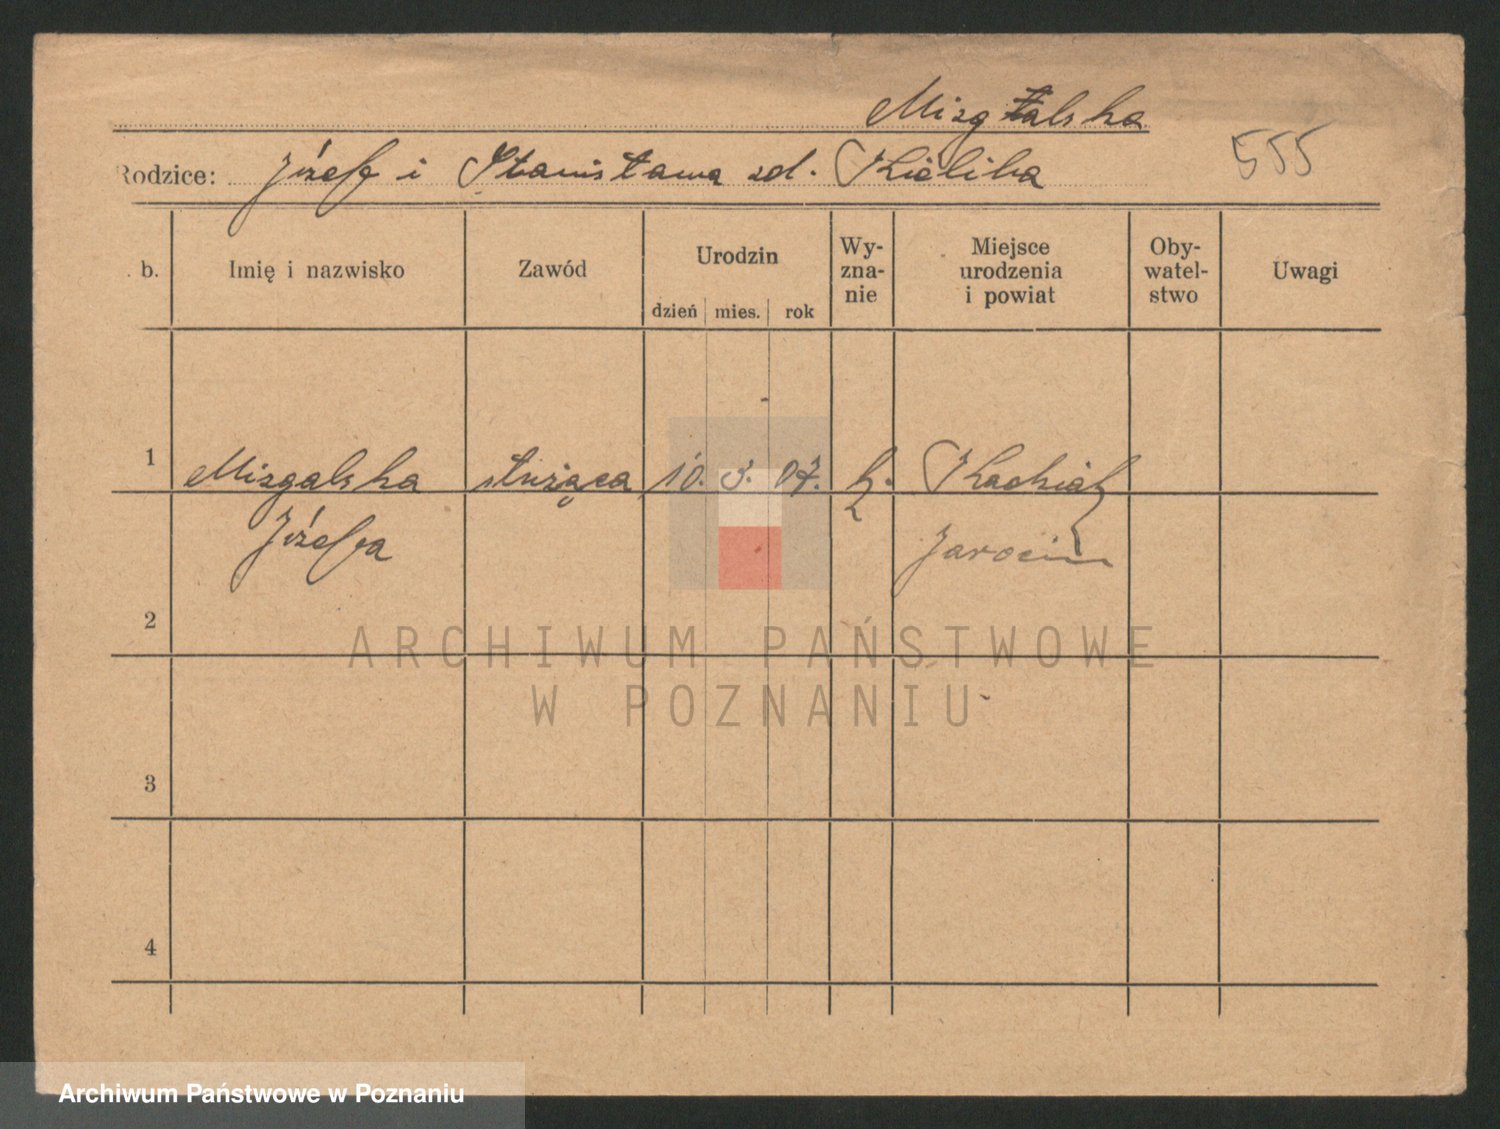 Mizgalska
555
Rodzice: Józef i Stanisława zd. Kielika
. b.
Imię i nazwisko
Zawód
Urodzin
dzień mies. rok
Wy-
zna-
nie
Miejsce
urodzenia
i powiat
Oby-
watel-
stwo
Uwagi
1 Mizgalska służąca 10. 3. 07. k.
Józefa Jarocin
2
ARCHIWUM PAŃSTWOWE
W POZNANIU
3
4
Archiwum Państwowe w Poznaniu